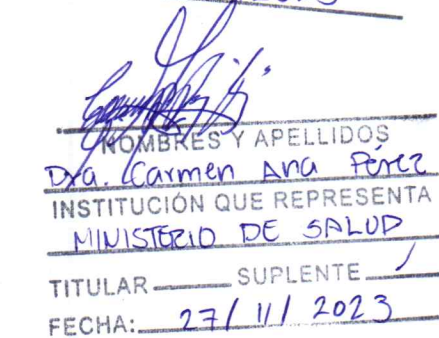 NOMBRES Y APELLIDOS
Dra. Carmen Ana Pérez
INSTITUCIÓN QUE REPRESENTA
MINISTERIO DE SALUD
TITULAR SUPLENTE /
FECHA: 27/11/2023